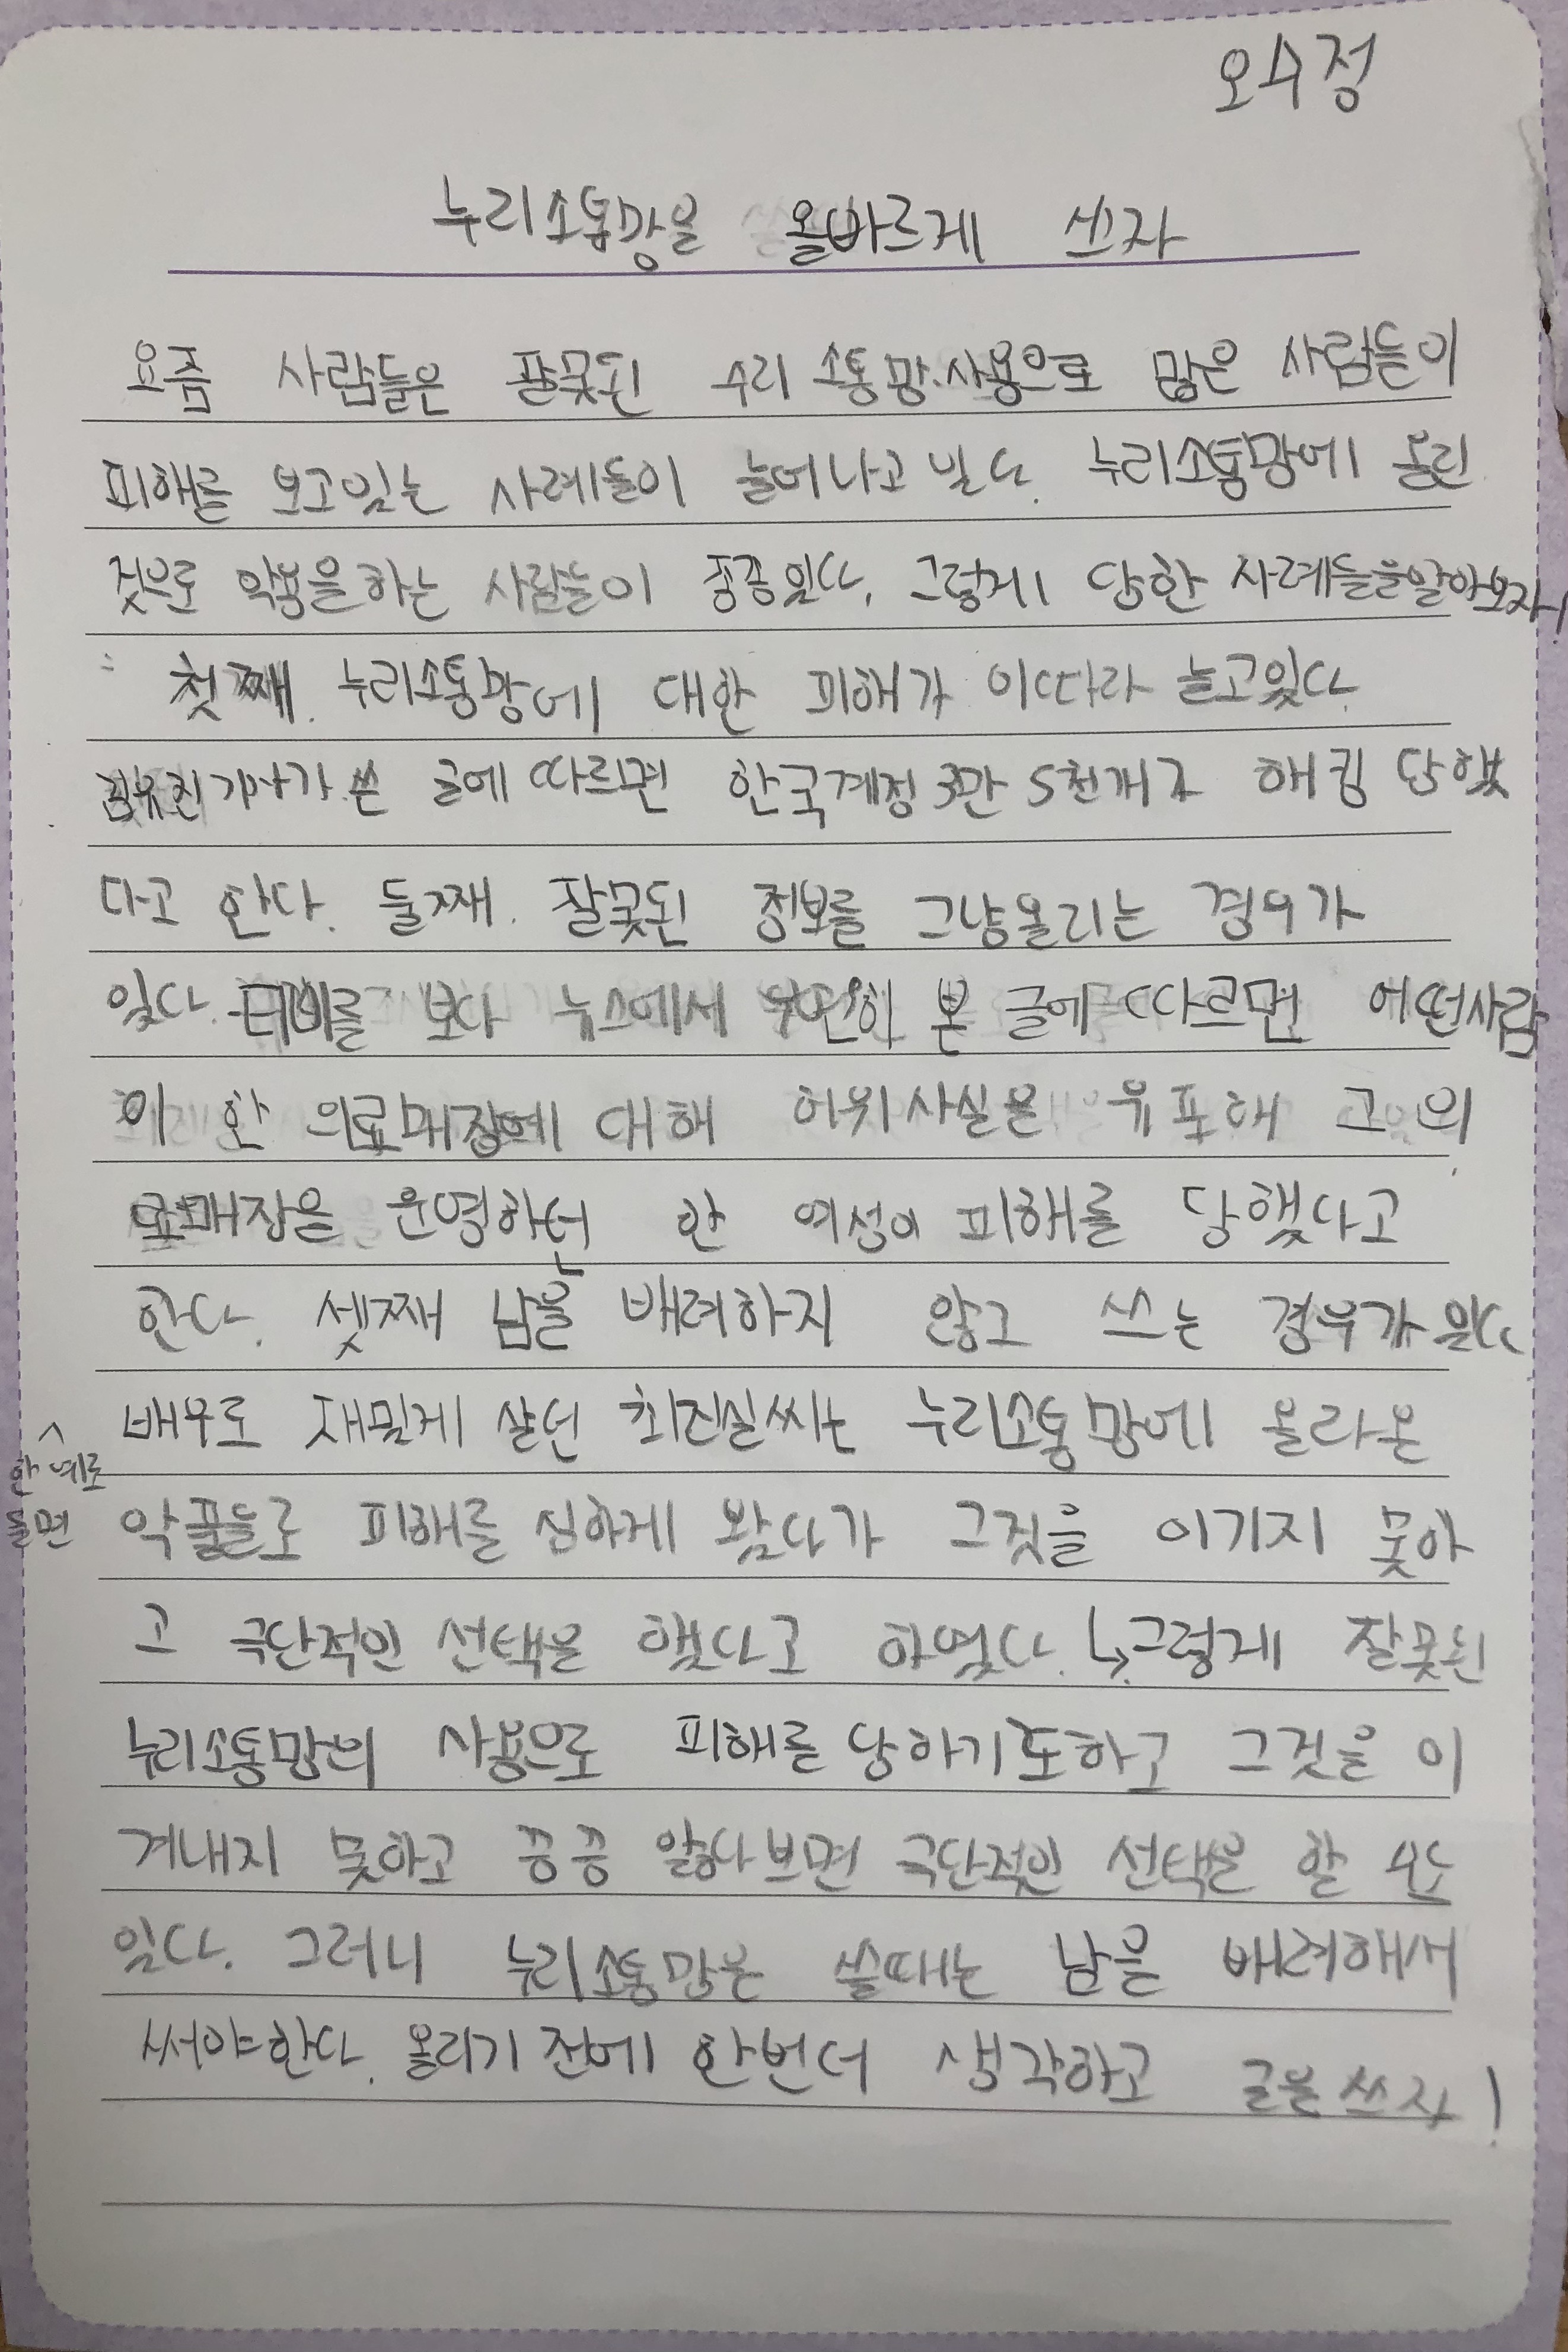 오수정
누리소통망을 올바르게 쓰자
요즘 사람들은 잘못된 누리 소통망 사용으로 많은 사람들이
피해를 보고있는 사례들이 늘어나고 있다. 누리소통망에 올린
것으로 악용을하는 사람들이 종종있다. 그렇게 당한 사례들을알아보자!
첫째. 누리소통망에 대한 피해가 이따라 늘고있다.
김유진기자가 쓴 글에 따르면 한국계정 3만 5천개가 해킹 당했
다고 한다. 둘째. 잘못된 정보를 그냥올리는 경우가
있다. 티비를 보다 뉴스에서 우연히 본 글에 따르면 어떤사람
이 한 의료매장에 대해 허위사실을 유포해 그 의
료매장을 운영하던 한 여성이 피해를 당했다고
한다. 셋째 남을 배려하지 않고 쓰는 경우가 있다
배우로 재밌게 살던 최진실씨는 누리소통망에 올라온
한 예로
들면
악플들로 피해를 심하게 봤다가 그것을 이기지 못하
고 극단적인 선택을 했다고 하였다. ↳그렇게 잘못된
누리소통망의 사용으로 피해를 당하기도하고 그것을 이
겨내지 못하고 끙끙 앓다보면 극단적인 선택을 할 수도
있다. 그러니 누리소통망을 쓸때는 남을 배려해서
써야한다. 올리기 전에 한번더 생각하고 글을 쓰자!